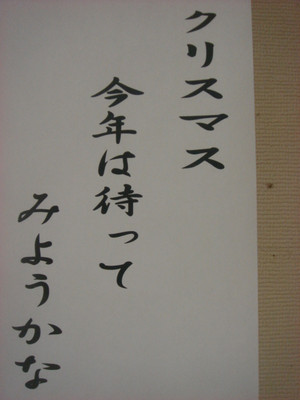 クリスマス
今年は待って
みようかな